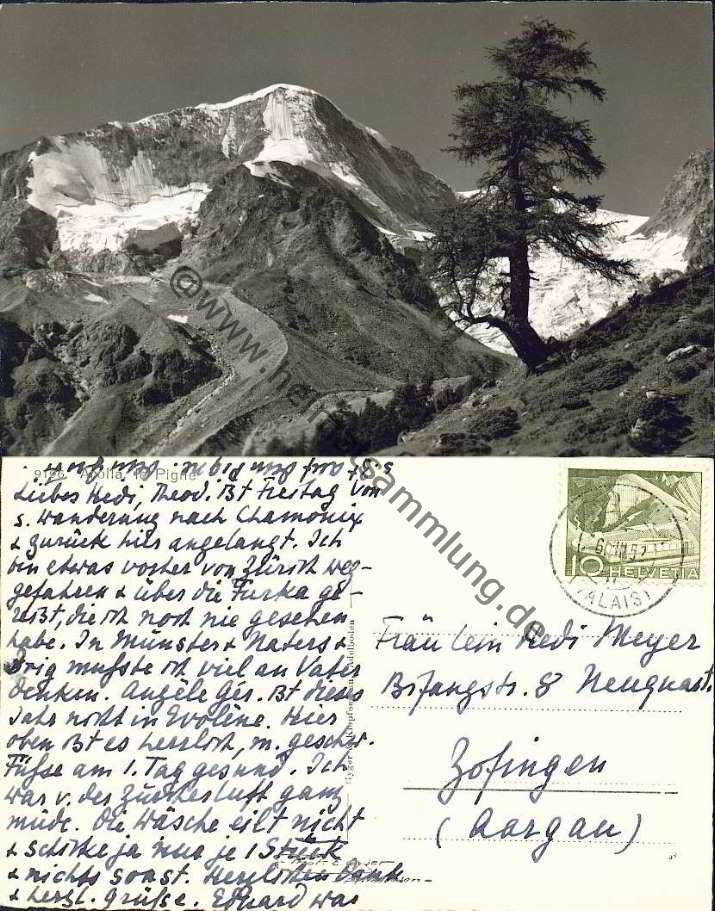 9196 Arolla, le Pigne
Liebes Hedi, Theod. ist Freitag von
s. Wanderung nach Chamonix
& zurück hier angelangt. Ich
bin etwas vorher von Zürich weg-
gefahren & über die Furka ge-
reist, die ich noch nie gesehen
habe. In Münster & Naters &
Brig musste ich viel an Vater
denken. Angèle Gér. ist dieses
Jahr nicht in Evolène. Hier
oben ist es herrlich, m. geschw.
Füsse am 1. Tag gesund. Ich
war v. der Zürcherluft ganz
müde. Die Wäsche eilt nicht
& schicke ja nur je 1 Stück
& nichts sonst. Herzlichen Dank
& herzl. Grüsse. Eduard was
10 HELVETIA
Fräulein Hedi Meyer
Bifangstr. 8 Neuquart.
Zofingen
(Aargau)
©www.heimatsammlung.de